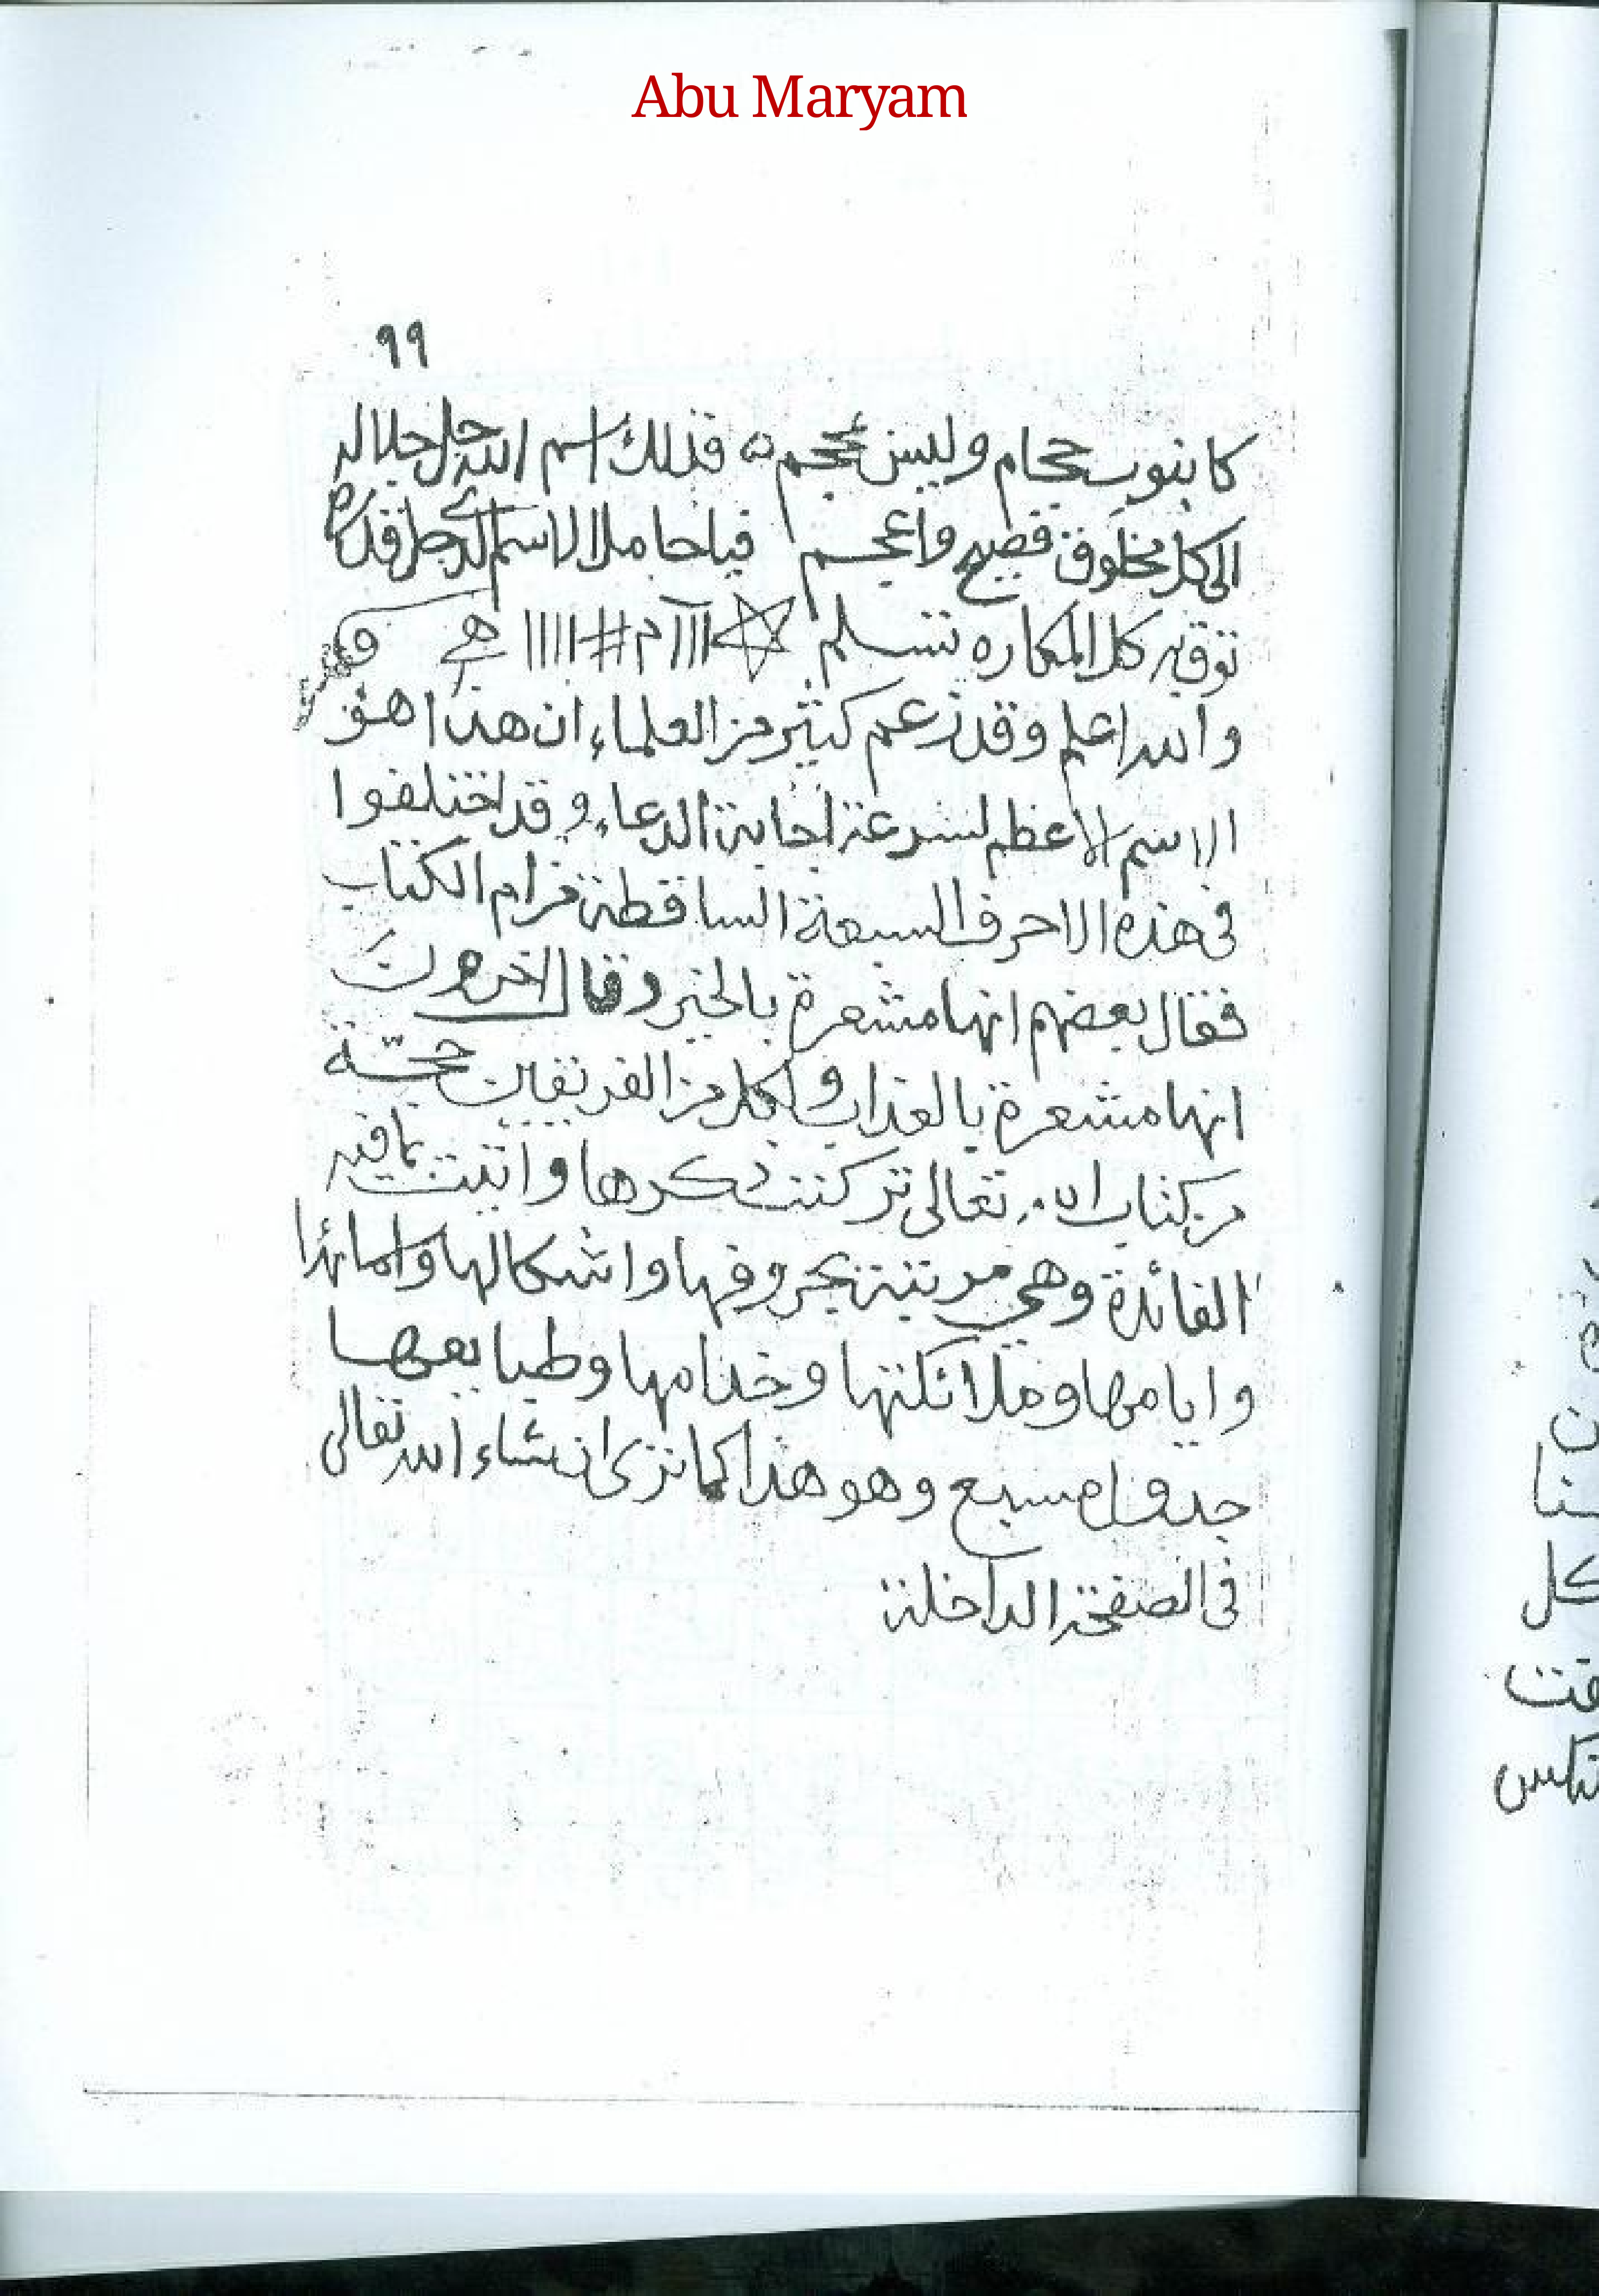 Abu Maryam
٩٩
كانبوب حجام وليس بمحجم ه فذلك اسم الله جل جلاله
الى كل مخلوق فصيح واعجم فيا حامل الاسم الذي جل قدره
توق به كل المكاره تسلم ☆ ااا م # اااا هـ و
والله اعلم وقد زعم كثير من العلماء ان هذا هو
الاسم الاعظم لسرعة اجابة الدعاء وقد اختلفوا
في هذه الاحرف السبعة الساقطة من ام الكتاب
فقال بعضهم انها مشعرة بالخير وقال اخرون
انها مشعرة بالعذاب ولكل من الفريقين حجة
من كتاب الله تعالى تركت ذكرها واتيت بما فيه
الفائدة وهي مرتبة بحروفها واشكالها واسمائها
وايامها وملائكتها وخدامها وطبايعها
جدول مسبع وهو هذا كما ترى ان شاء الله تعالى
في الصفحة الداخلة
كل